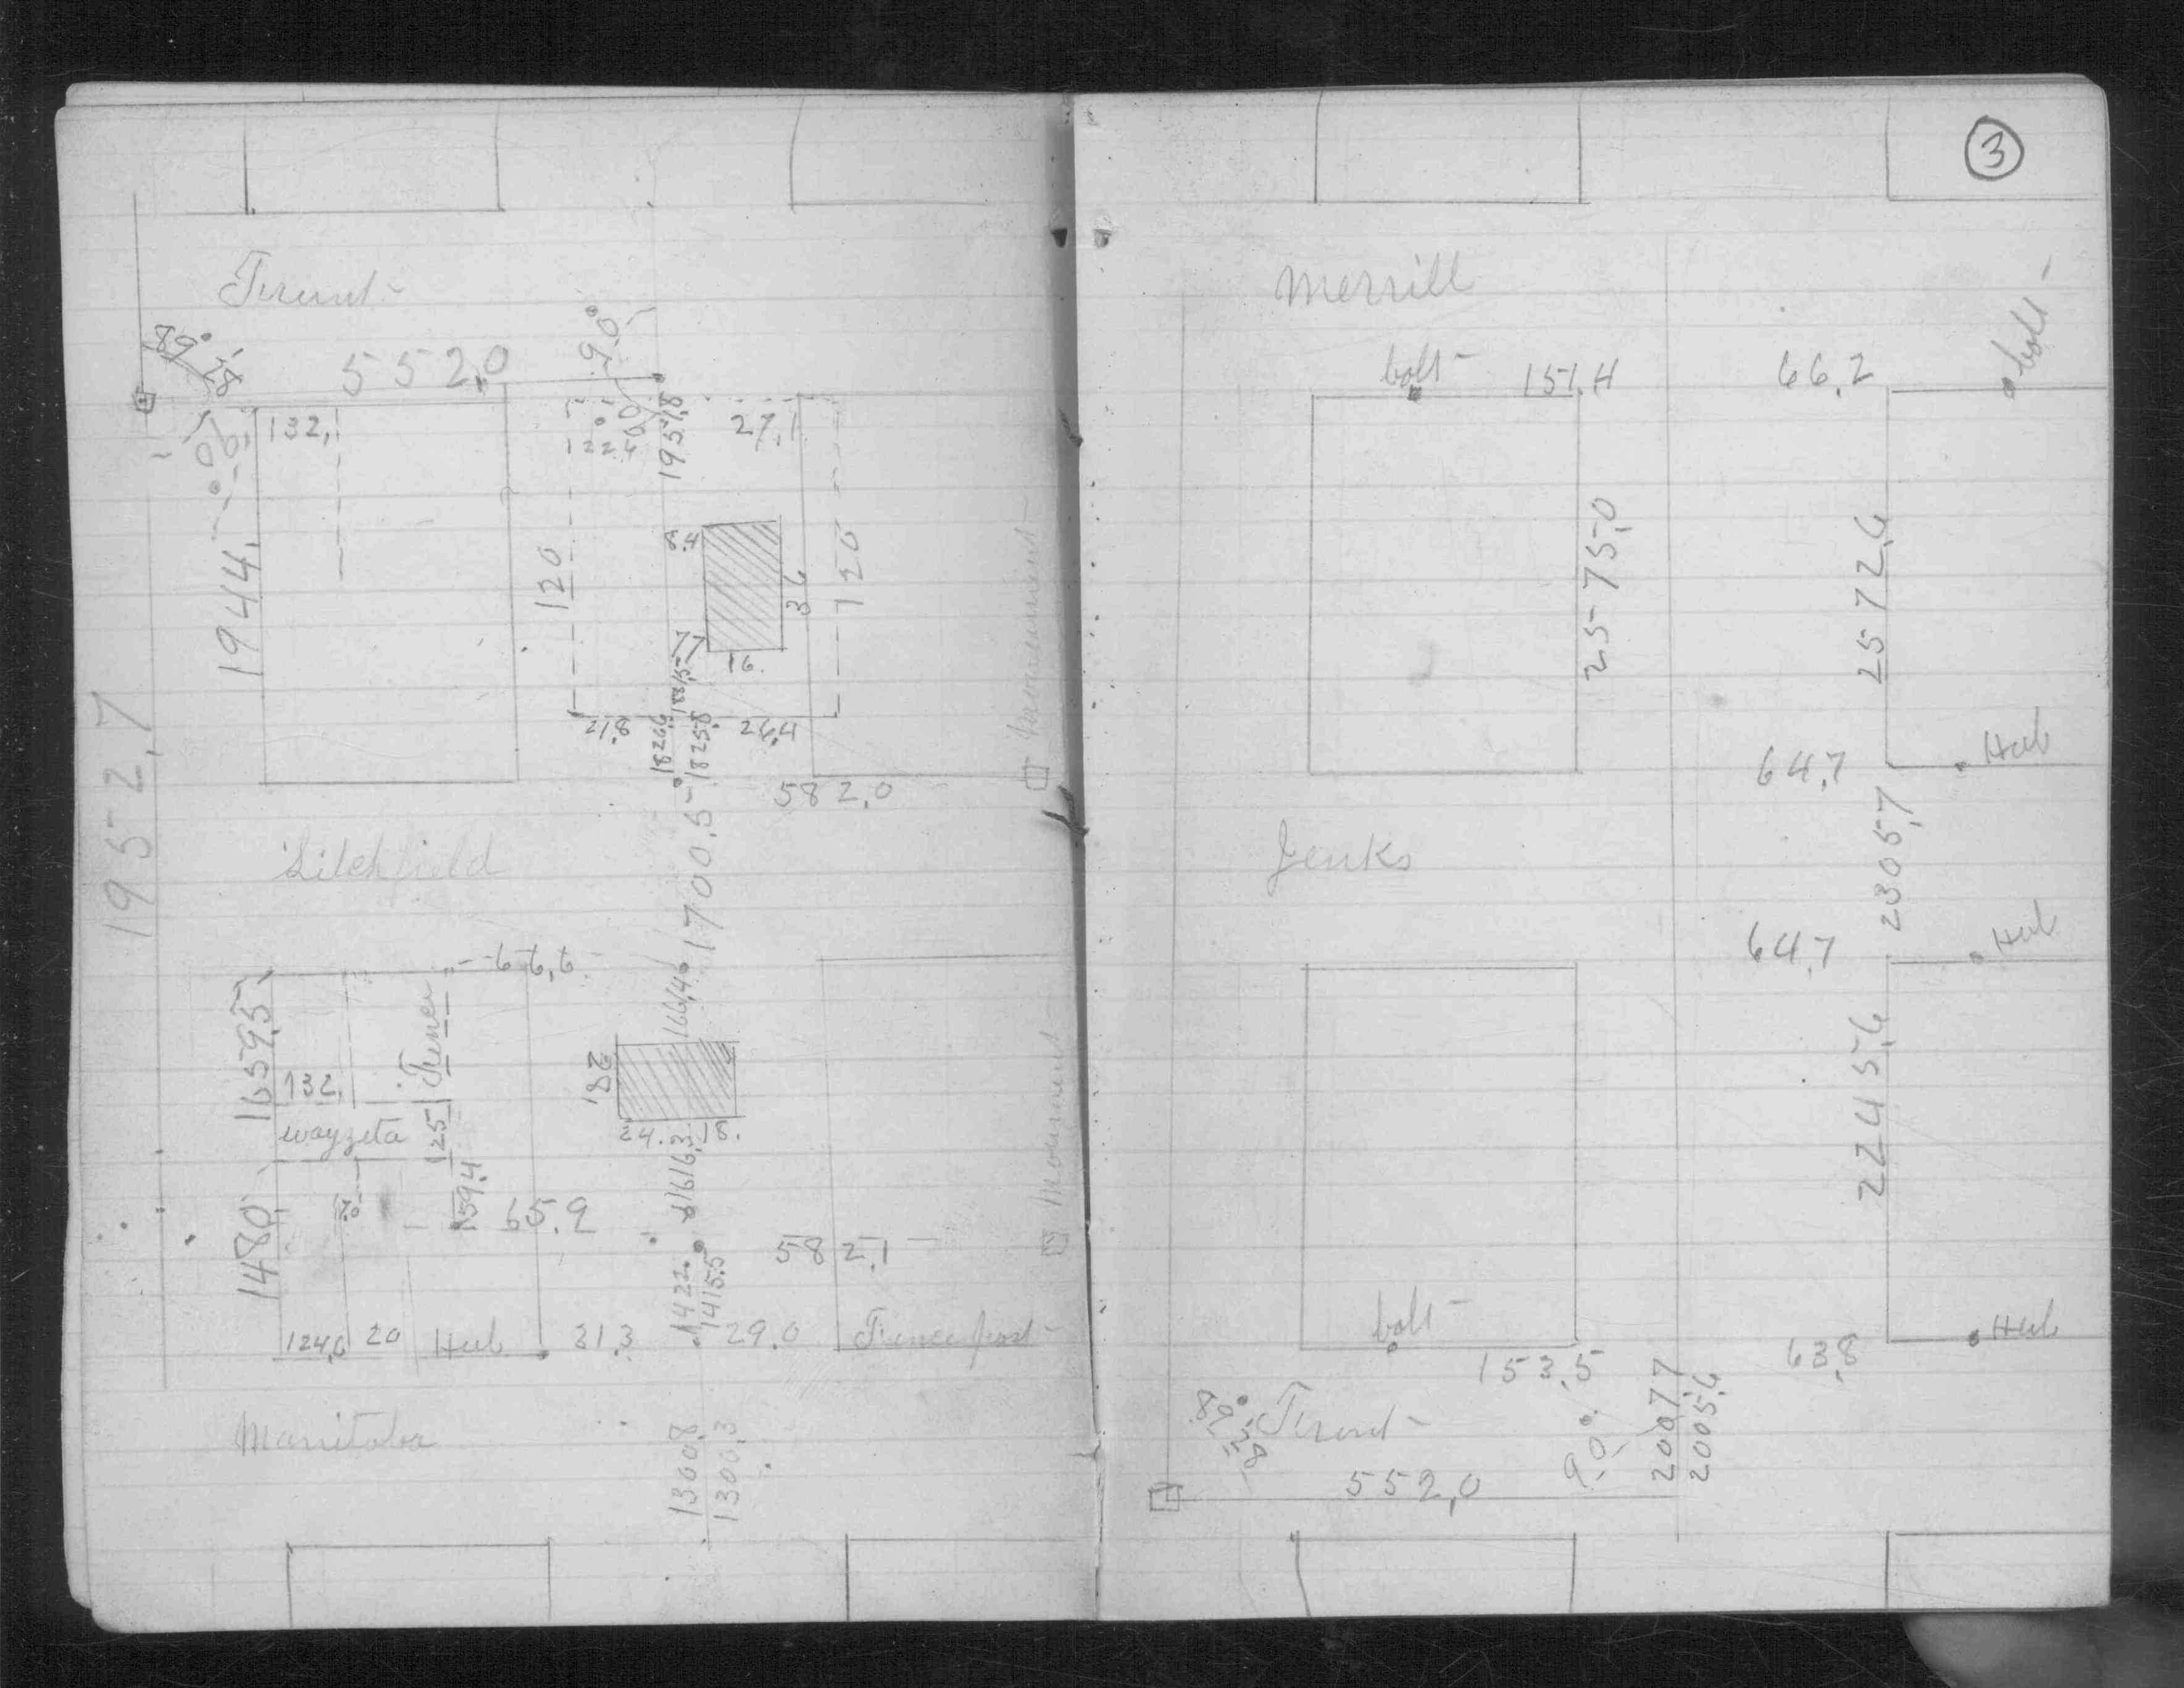 Front
89° 28'
552.0
90°
132.
90°
1944.
1951.8
27.1
8.4
120
36
120
77
16.
21.8
1826.6
1825.8
26.4
582.0
monument
1952.7
Litchfield
1700.5
66.6
1664.
1659.5
Turner
132.
wayzeta
125
182
24. 18.
1616.3
159.4
65.9
1480
1422.
1415.5
582.1
monument
124.6 20 Hub 31.3 29.0 Fence post
Manitoba
1300.8
1300.3
3
Merrill
bolt 151.4 66.2 bolt
2575.0
2572.6
64.7 Hub
2305.7
Jenks
64.7 Hub
2245.6
bolt
153.5 63.8 Hub
89° 28' Front
90°
2007.7
2005.6
552.0